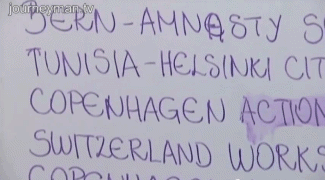 journeyman.tv
BERN-AMNASTY S
TUNISIA-HELSINKI CIT
COPENHAGEN ACTION
SWITZERLAND WORKS
COPENHAGEN